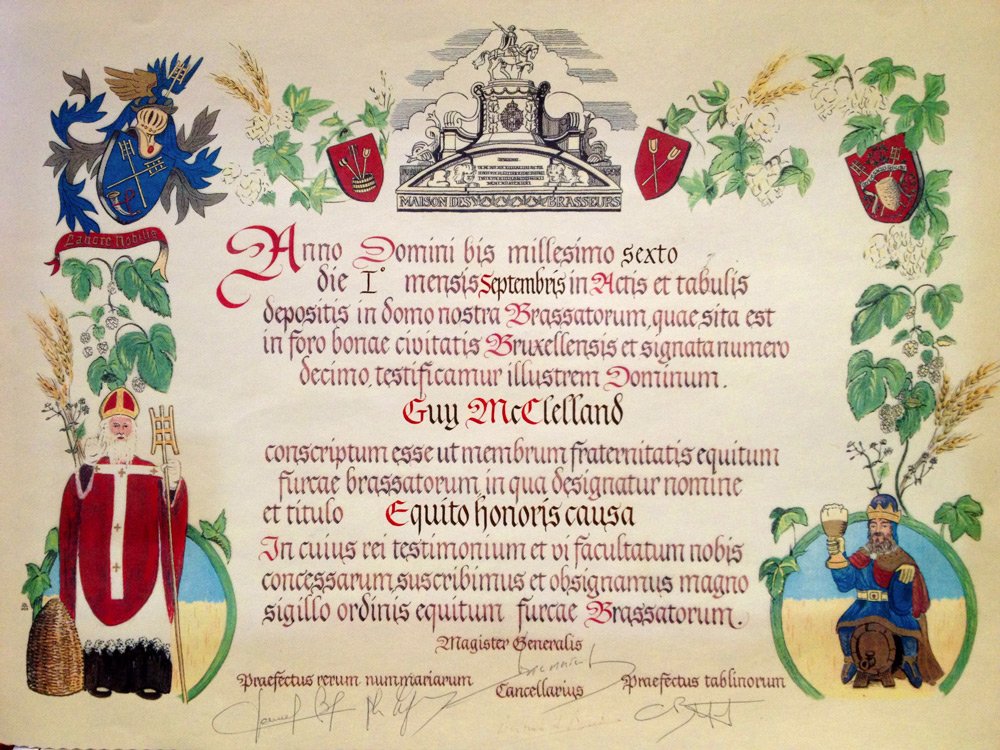 MAISON DES BRASSEURS
Labore Nobilis
Anno Domini bis millesimo sexto
die I° mensis Septembris in Actis et tabulis
depositis in domo nostra Brassatorum, quae sita est
in foro bonae civitatis Bruxellensis et signata numero
decimo, testificamur illustrem Dominum.
Guy McClelland
conscriptum esse ut membrum fraternitatis equitum
furcae brassatorum, in qua designatur nomine
et titulo Equito honoris causa
In cuius rei testimonium et vi facultatum nobis
concessarum, suscribimus et obsignamus magno
sigillo ordinis equitum furcae Brassatorum.
Magister Generalis
Praefectus rerum nummariarum Cancellarius Praefectus tablinorum